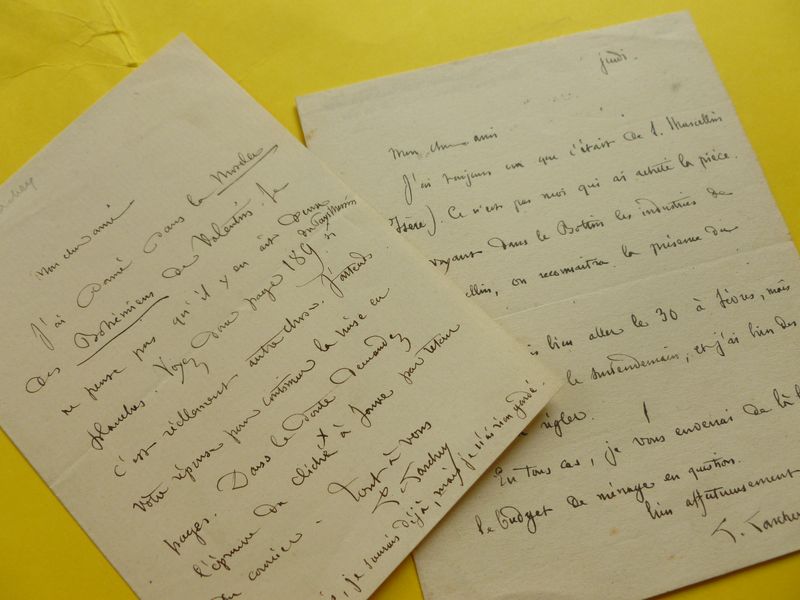 Mon cher ami
J'ai donné dans la Mosden
des Bohémiens de Valentin. Je
ne pense pas qu'il y en ait deux
du Pays Messin
planches. Voyez donc page 189
si
c'est réellement autre chose. J'attends
votre réponse pour continuer la mise en
pages. Dans le doute demandez
l'épreuve du cliché à Jouve par retour
du courrier. Tout à vous
je saurais déjà, mais je n'ai rien gardé.
jeudi.
Mon cher ami
J'ai toujours cru que c'était de S. Marcellin
(Isère). Ce n'est pas moi qui ai acheté la pièce.
voyant dans le Bottin les industries de
ellin, on reconnaîtra la présence du
bien aller le 30 à Sèvres, mais
le surlendemain, et j'ai bien des
à régler.
En tous cas, je vous enverrai de là
le budget de ménage en question.
bien affectueusement